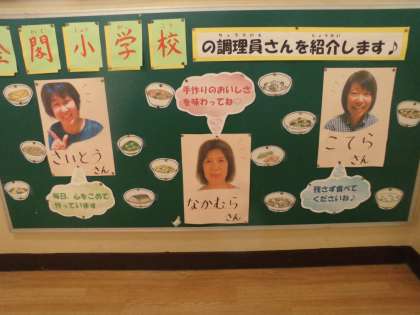 金閣小学校
の調理員さんを紹介します♪
さいとうさん
毎日、心をこめて
作っています
手作りのおいしさ
を味わってね♡
なかむらさん
こてらさん
残さず食べて
くださいね♪